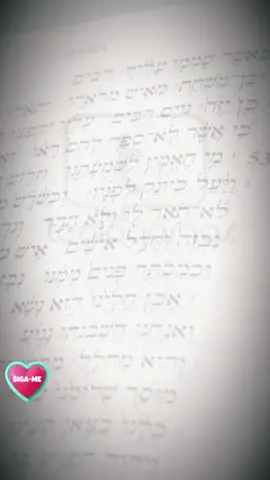 כַּאֲשֶׁר שָׁמְמוּ עָלֶיךָ רַבִּים
כֵּן־מִשְׁחַת מֵאִישׁ מַרְאֵהוּ
כֵּן יַזֶּה גּוֹיִם רַבִּים עָלָיו
כִּי אֲשֶׁר לֹא־סֻפַּר לָהֶם רָאוּ
53 מִי הֶאֱמִין לִשְׁמֻעָתֵנוּ וּזְרוֹעַ
וַיַּעַל כַּיּוֹנֵק לְפָנָיו וְכַשֹּׁרֶשׁ
לֹא־תֹאַר לוֹ וְלֹא הָדָר
נִבְזֶה וַחֲדַל אִישִׁים אִישׁ
וּכְמַסְתֵּר פָּנִים מִמֶּנּוּ
אָכֵן חֳלָיֵנוּ הוּא נָשָׂא
וַאֲנַחְנוּ חֲשַׁבְנֻהוּ נָגוּעַ
וְהוּא מְחֹלָל
מוּסַר שְׁלוֹמֵנוּ
כֻּלָּנוּ כַּצֹּאן
SIGA-ME